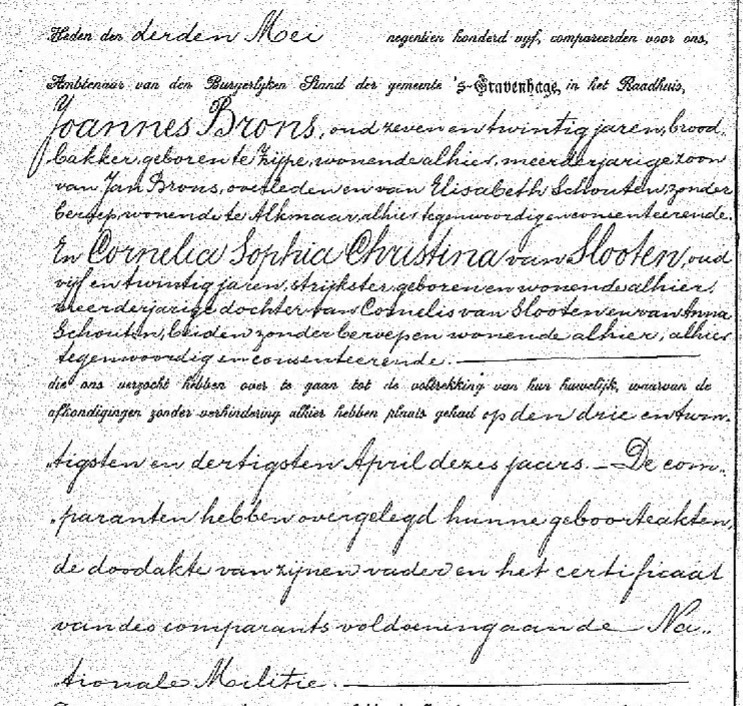 Heden den derden Mei negentien honderd vyf, compareerden voor ons,
Ambtenaar van den Burgerlyken Stand der gemeente 's-Gravenhage, in het Raadhuis,
Joannes Brons, oud zeven en twintig jaren, brood-
bakker, geboren te Zijpe, wonende alhier, meerderjarige zoon
van Jan Brons, overleden en van Elisabeth Schouten, zonder
beroep, wonende te Alkmaar, alhier tegenwoordig en consenteerende.
En Cornelia Sophia Christina van Slooten, oud
vijf en twintig jaren, strijkster, geboren en wonende alhier,
meerderjarige dochter van Cornelis van Slooten en van Anna
Schouten, beiden zonder beroep en wonende alhier, alhier
tegenwoordig en consenteerende.
die ons verzocht hebben over te gaan tot de voltrekking van hun huwelijk, waarvan de
afkondigingen zonder verhindering alhier hebben plaats gehad op den drie en twin-
„tigsten en dertigsten April dezes jaars. — De com-
„paranten hebben overgelegd hunne geboorteakten,
de doodakte van zijnen vader en het certificaat
van des comparants voldoening aan de Na-
„tionale Militie.